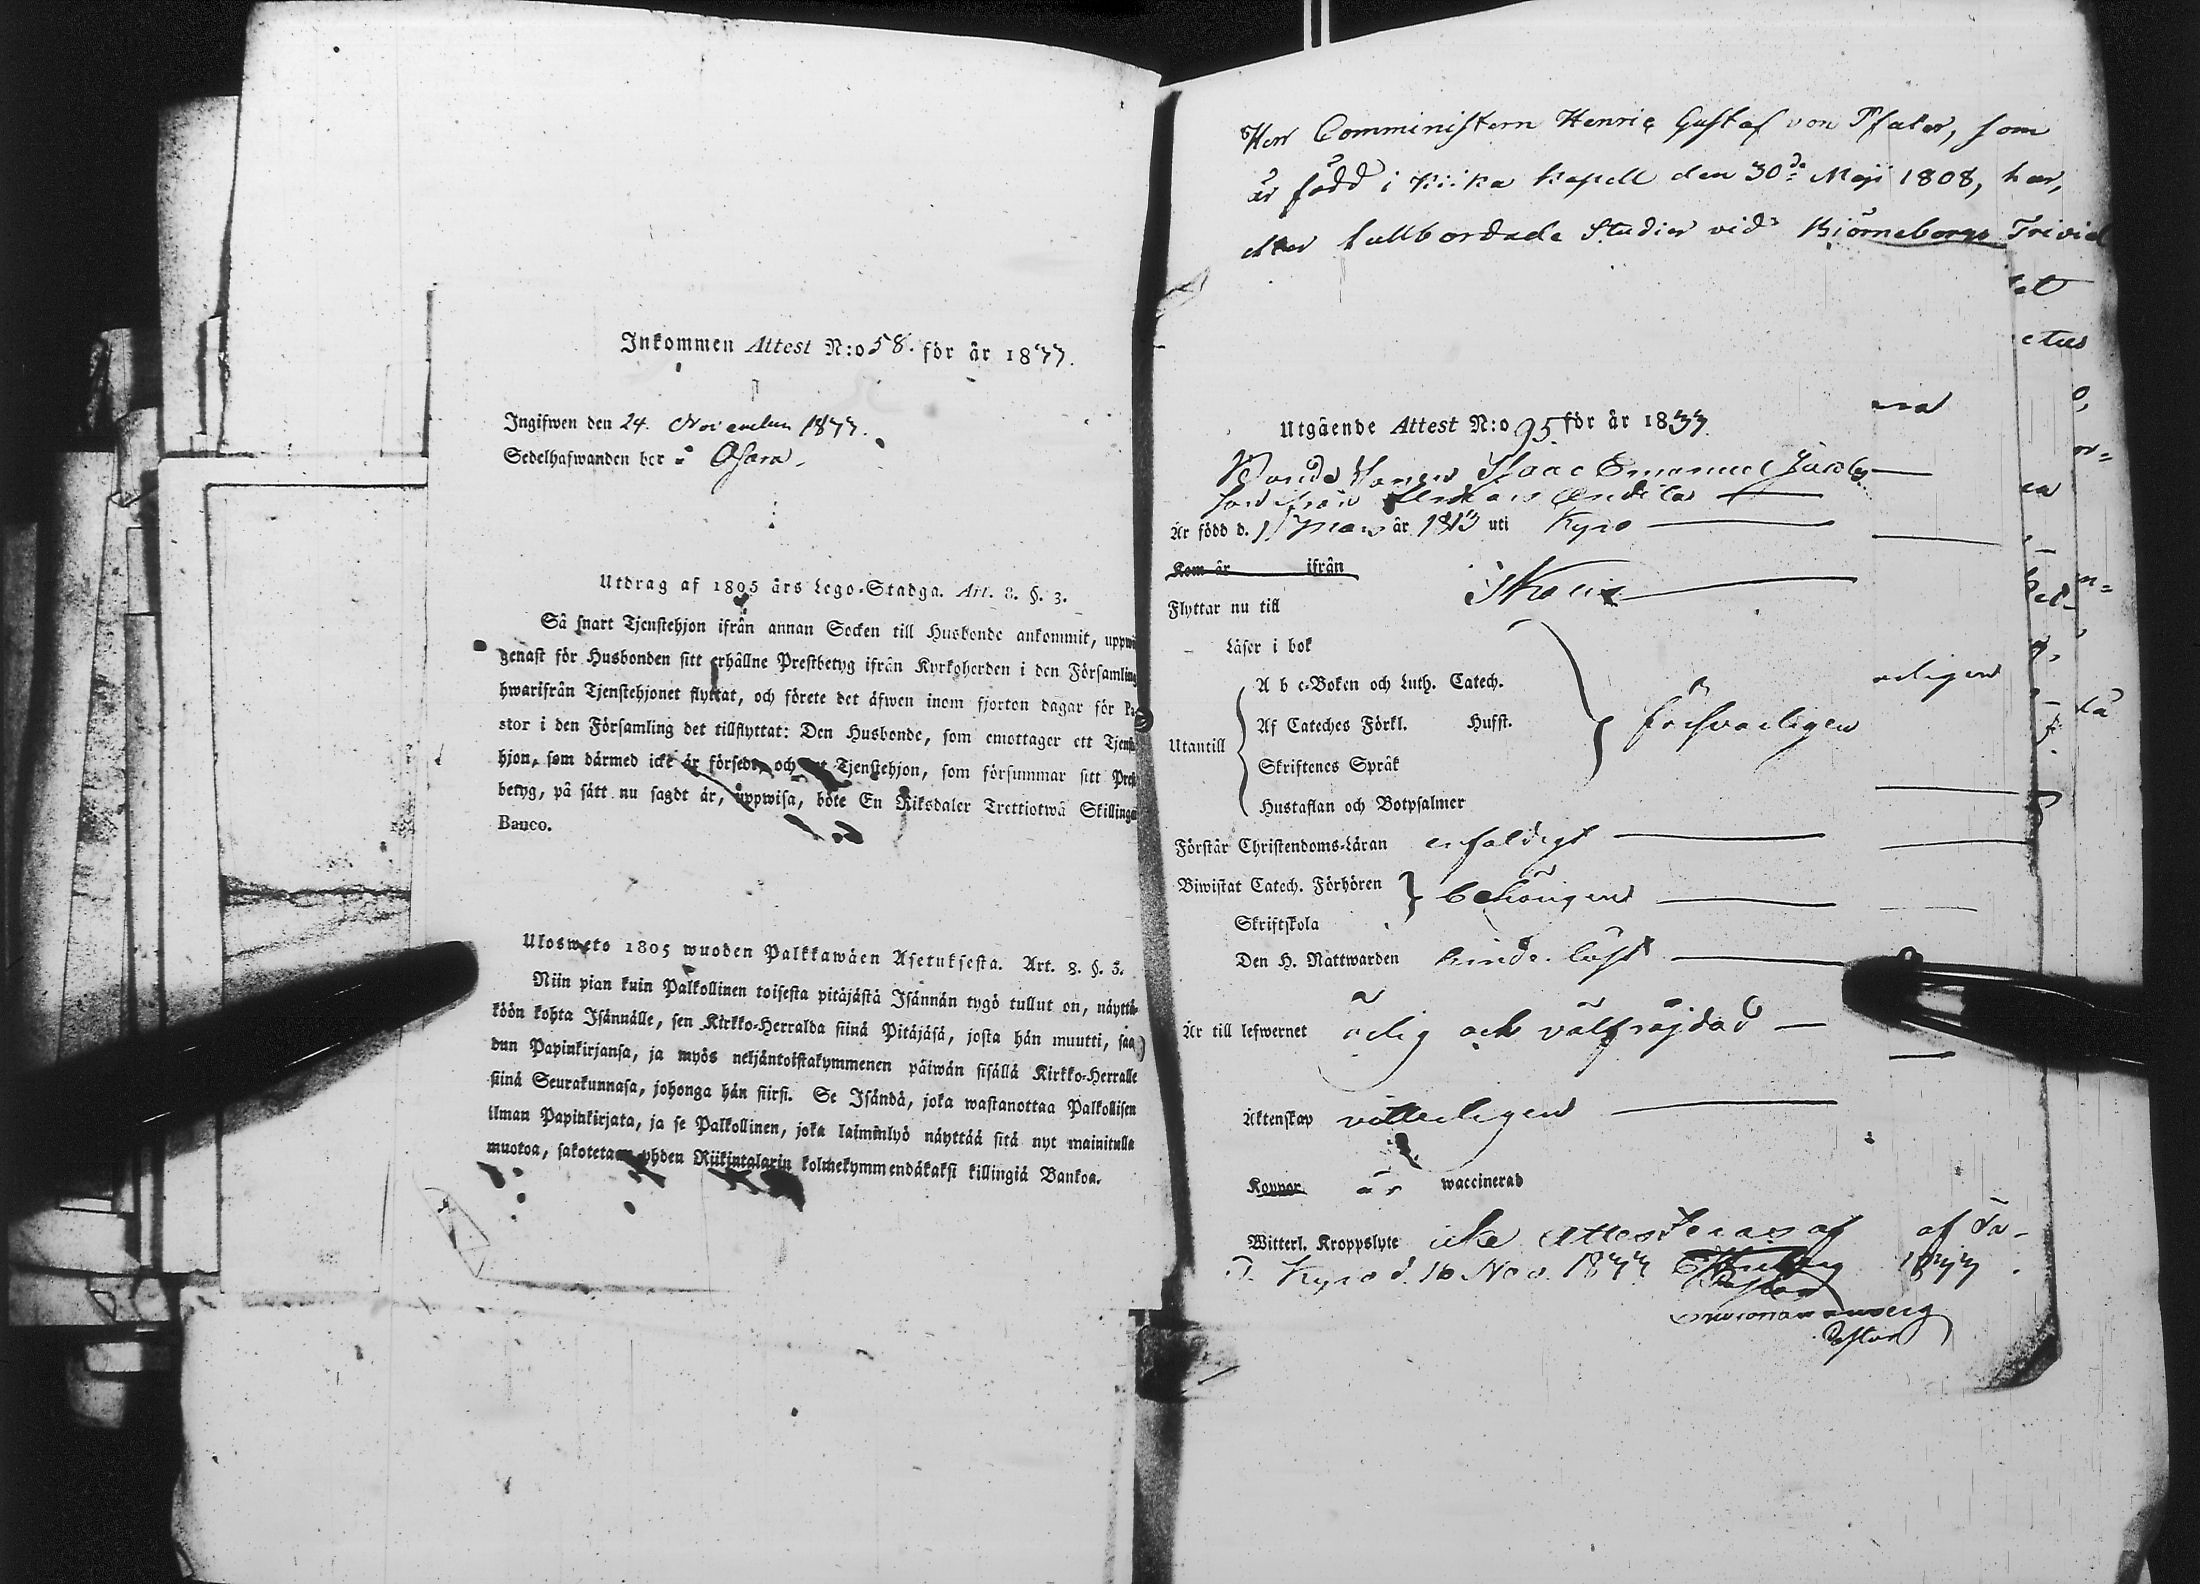 Inkommen Attest N:o 58. för år 1877.
Ingifwen den 24. November 1877.
Sedelhafwanden bor i
Utdrag af 1805 års Lego-Stadga. Art. 8. §. 3.
Så snart Tjenstehjon ifrån annan Socken till Husbonde ankommit, uppwi
genast för Husbonden sitt erhållne Prestbetyg ifrån Kyrkoherden i den Församling
hwarifrån Tjenstehjonet flyttat, och förete det äfwen inom fjorton dagar för Pa
stor i den Församling det tillflyttat: Den Husbonde, som emottager ett Tjenste
hjon, som därmed icke är försedt, och Tjenstehjon, som försummar sitt Prest
betyg, på sätt nu sagdt är, uppwisa, böte En Riksdaler Trettiotwå Skillingar
Banco.
Ulosweto 1805 wuoden Palkkawäen Asetuksesta. Art. 8. §. 3.
Niin pian kuin Palkollinen toisesta pitäjästä Isännän tygö tullut on, näyttä-
köön kohta Isännälle, sen Kirkko-Herralda siinä Pitäjäsä, josta hän muutti, saa
dun Papinkirjansa, ja myös neljäntoistakymmenen päiwän sisällä Kirkko-Herralle
siinä Seurakunnasa, johonga hän siirsi. Se Isändä, joka wastanottaa Palkollisen
ilman Papinkirjata, ja se Palkollinen, joka laiminlyö näyttää sitä nyt mainitulla
muotoa, sakotetaan yhden Riikintalarin kolmekymmendäkaksi killingiä Bankoa.
Herr Comministern Henric Gustaf von Pfaler, som
är född i Kiika Kapell den 30de Maji 1808, har,
efter fullbordade Studier vid Björneborgs Trivial
Utgående Attest N:o 95 för år 1833.
Bonde Sonen Isaac Emanuel Jacobs
son ifrån
Är född d. 1 Mars år 1813 uti Kyro
Kom år ifrån
Flyttar nu till
Läser i bok
A b c-Boken och Luth. Catech.
Af Cateches Förkl. Hufst.
Utantill
försvarligen
Skriftenes Språk
Hustaflan och Botpsalmer
Förstår Christendoms-Läran enfaldigt
Biwistat Catech. Förhören behörigen
Skriftskola
Den H. Nattwarden
Är till lefwernet ärlig och välfräjdad
Äktenskap
Koppor är waccinerad
Witterl. Kroppslyte icke Attesteras af
Kyro d. 16 Nov. 1833
Pastor